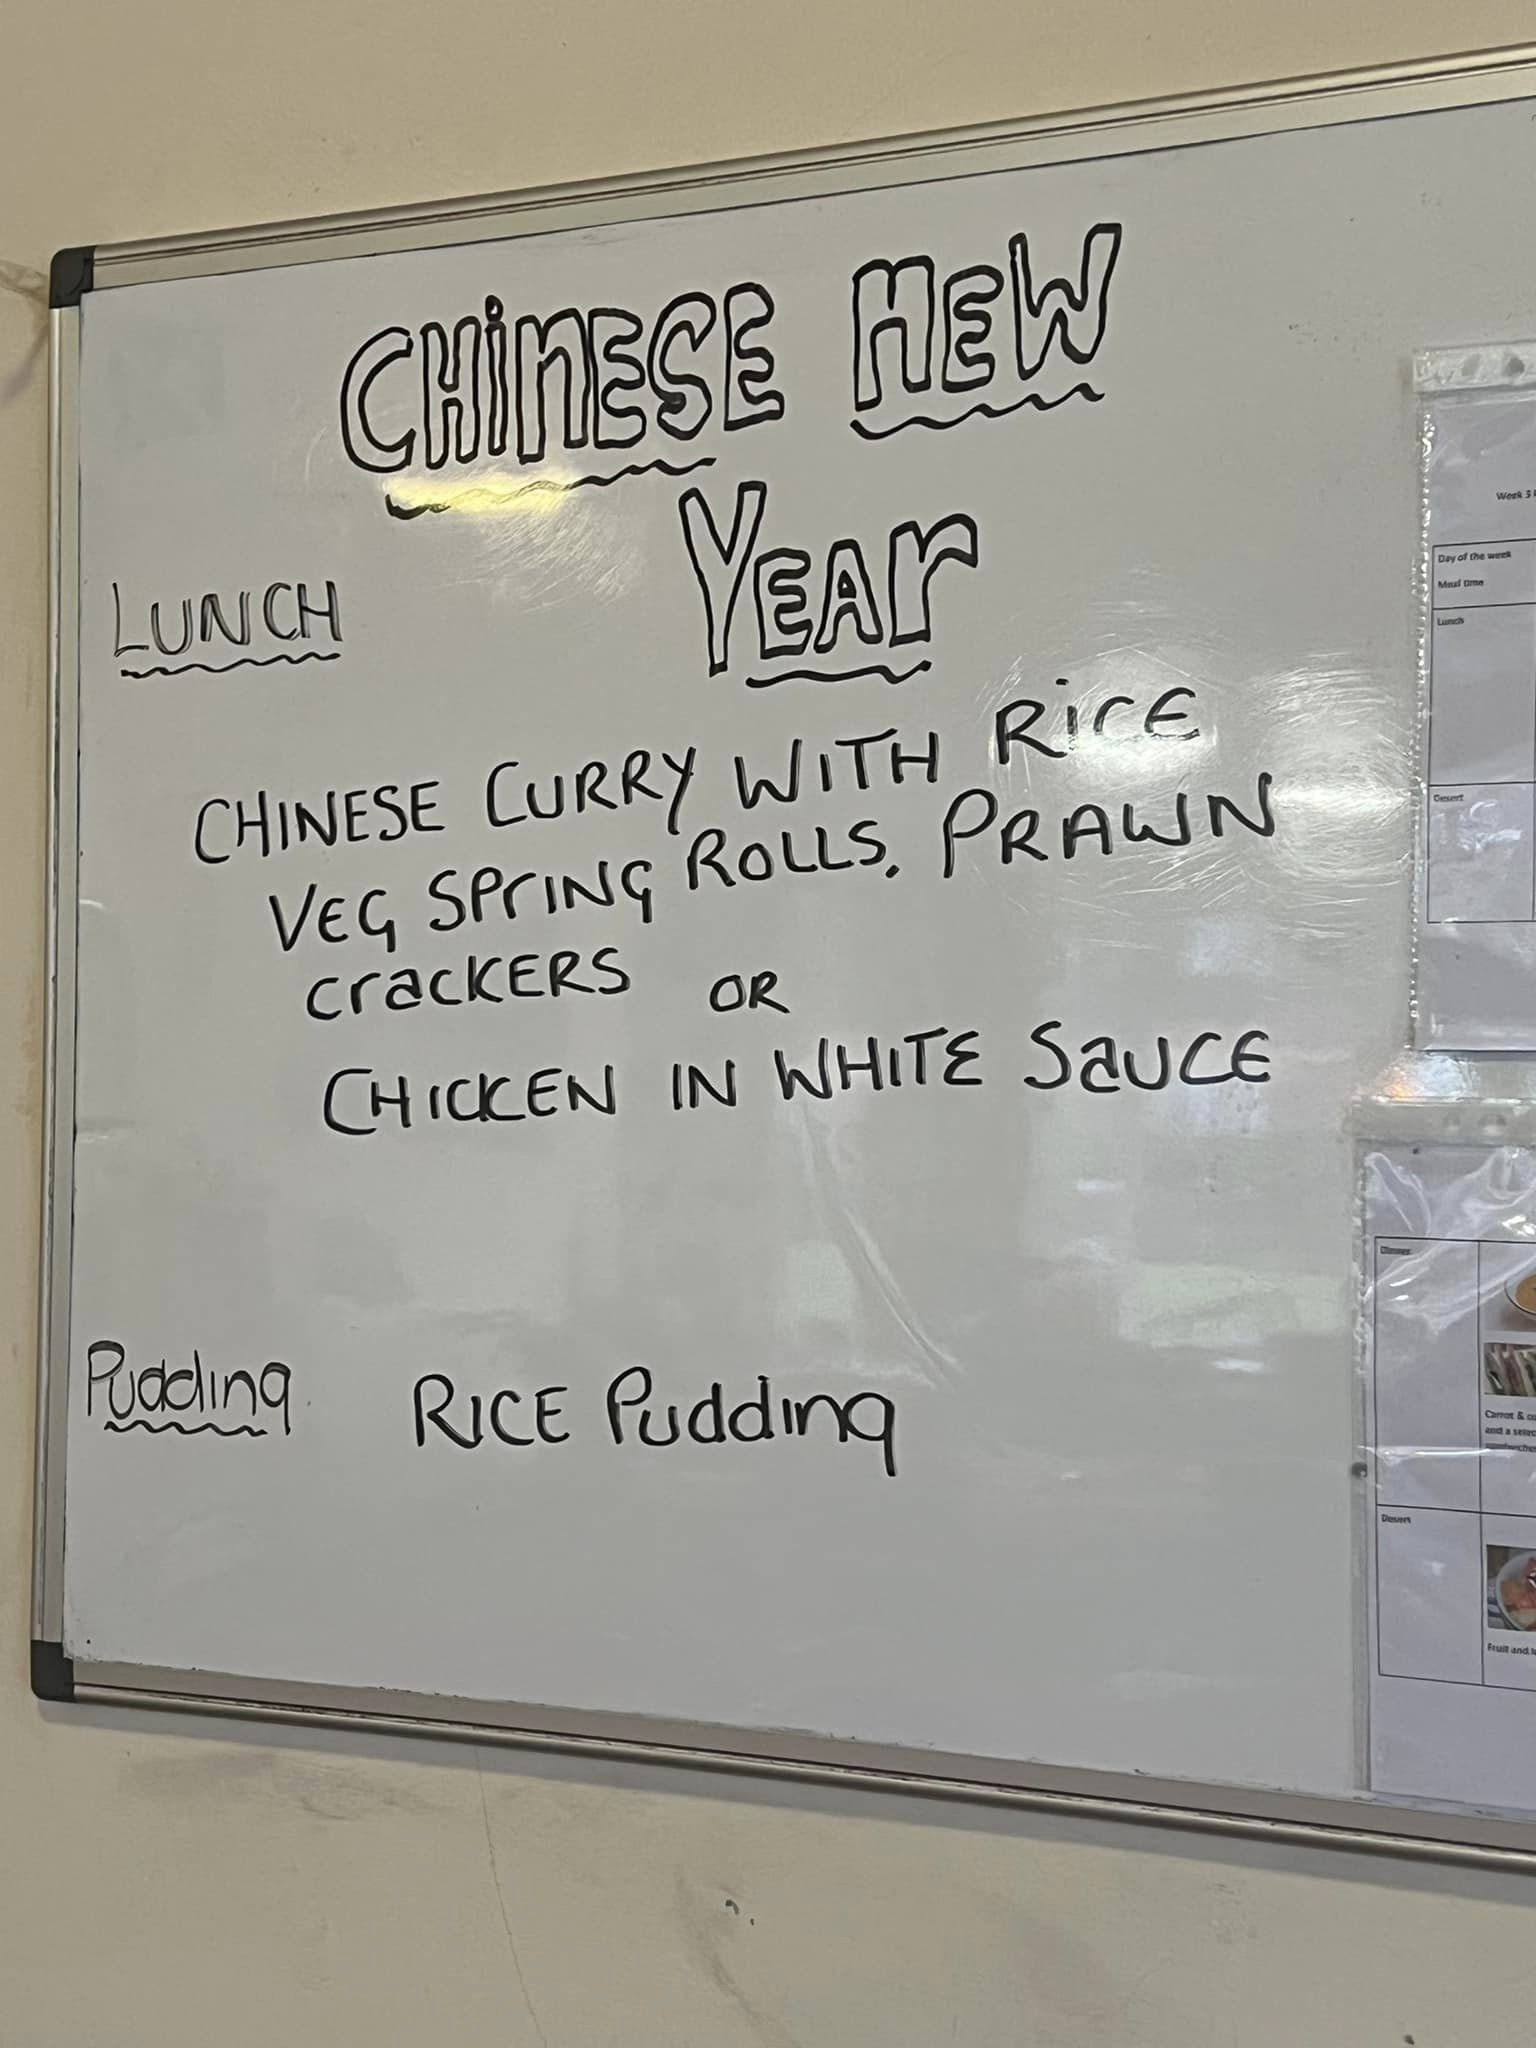 CHiNESE NEW
YEAr
LUNCH
CHINESE CURRY WITH RicE
VEG SPrING ROLLS. PRAWN
CraCKERS OR
CHICKEN IN WHITE SaUCE
Pudding RICE Pudding
Week 3
Day of the week
Meal time
Lunch
Desert
Dinner
Carrot &
and a
Desert
Fruit and